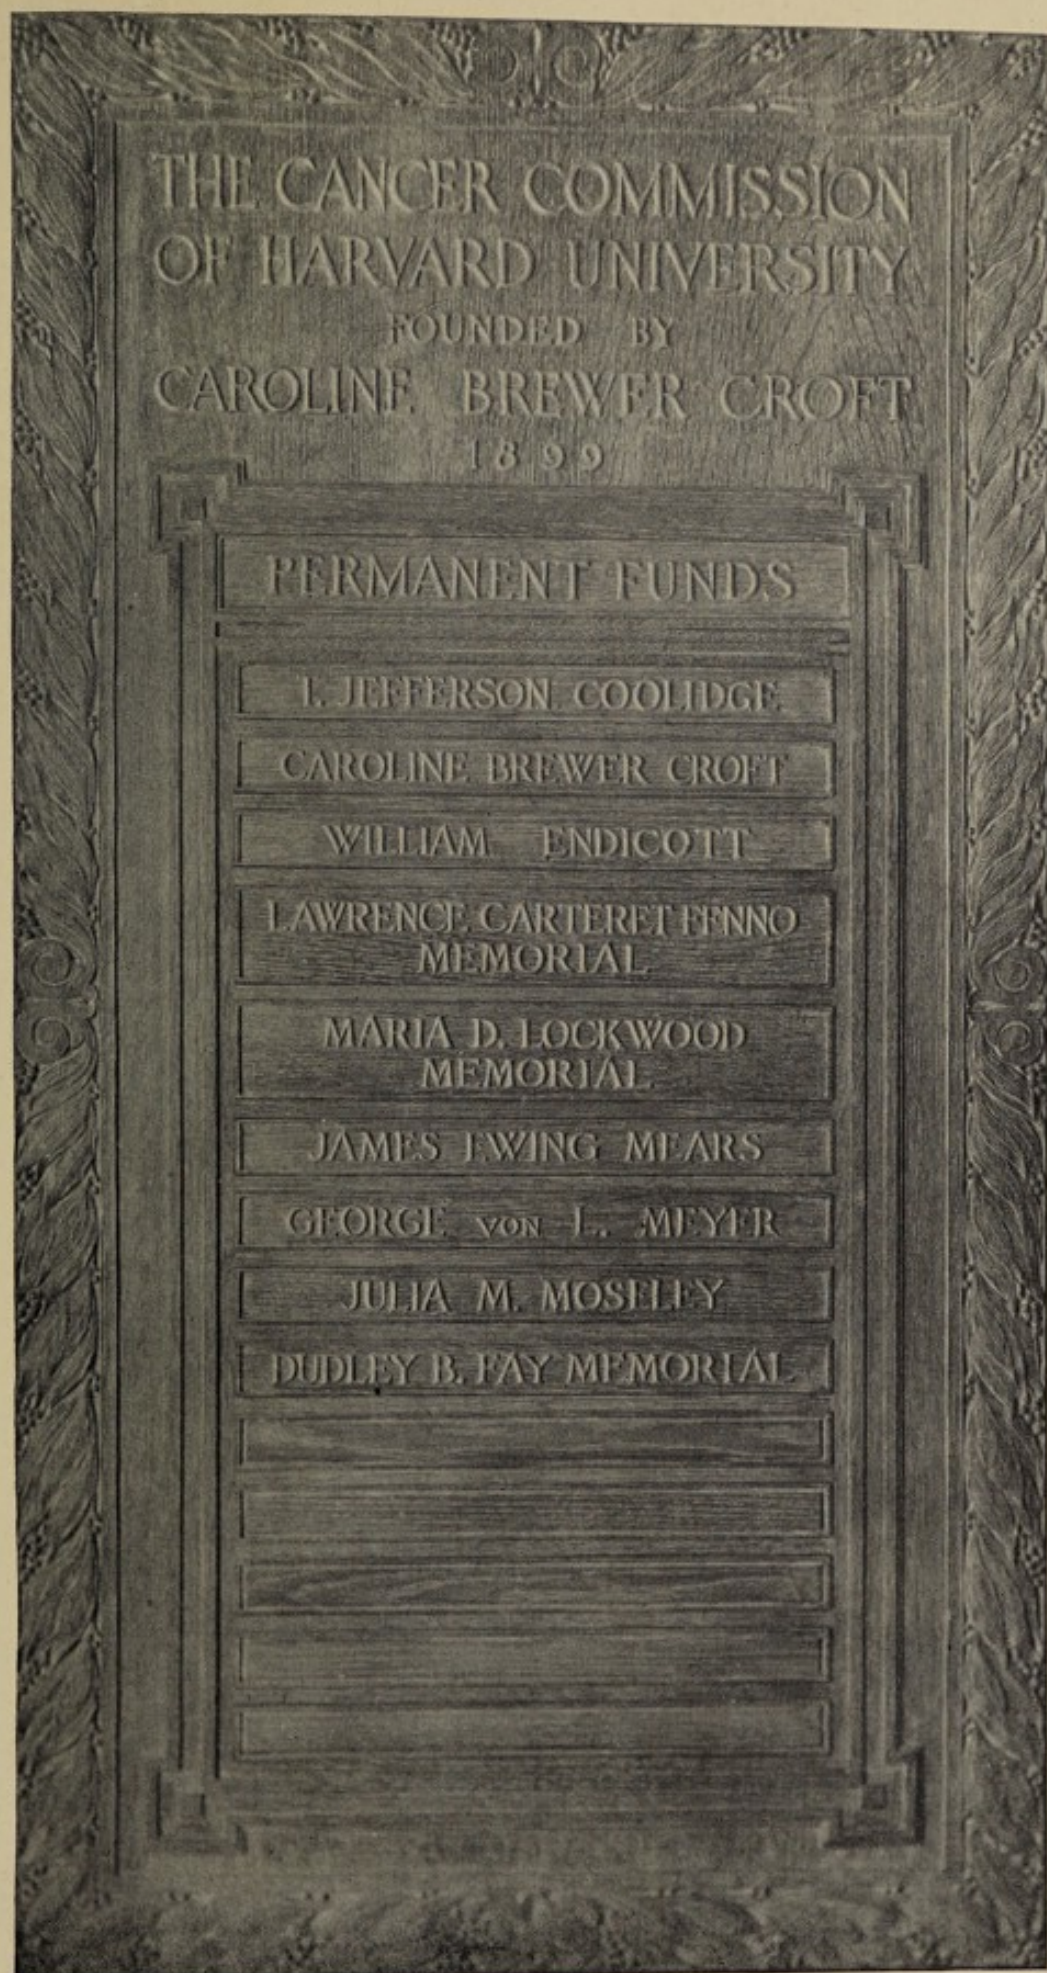 THE CANCER COMMISSION
OF HARVARD UNIVERSITY
FOUNDED BY
CAROLINE BREWER CROFT
1899
PERMANENT FUNDS
T. JEFFERSON COOLIDGE
CAROLINE BREWER CROFT
WILLIAM ENDICOTT
LAWRENCE CARTERET FENNO
MEMORIAL
MARIA D. LOCKWOOD
MEMORIAL
JAMES EWING MEARS
GEORGE VON L. MEYER
JULIA M. MOSELEY
DUDLEY B. FAY MEMORIAL